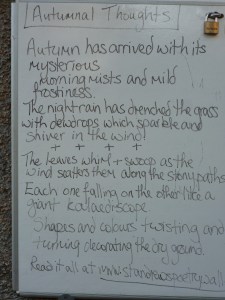 Autumnal Thoughts
Autumn has arrived with its
mysterious
Morning mists and mild
frostiness.
The night rain has drenched the grass
with dewdrops which sparkle and
shiver in the wind
+ + + +
The leaves whirl + swoop as the
wind scatters them along the stony paths
Each one falling on the other like a
giant kaliaediscope
Shapes and colours twisting and
turning decorating the dry ground.
Read it all at www.standrewspoetrywall